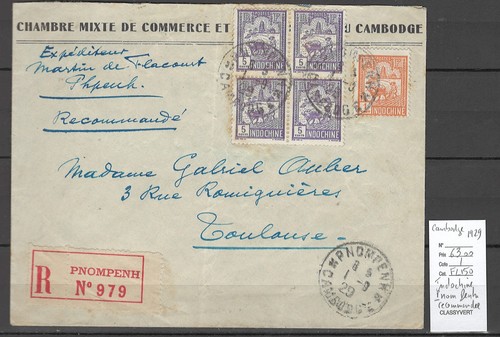 CHAMBRE MIXTE DE COMMERCE ET CAMBODGE
Expéditeur
Martin de Flacourt
Phpenh.
Recommandé
5 5
INDOCHINE INDOCHINE
5 5
INDOCHINE INDOCHINE
INDOCHINE
Madame Gabriel Auber
3 Rue Romiguières
Toulouse.
R PNOMPENH
Nº 979
PNOMPENH
1 - 9
29
CAMBODGE
Cambodge 1929
Nº
Prix 63.00
Cote 1
Indochine
Pnom Penh
recommandée
CLASSYVERT